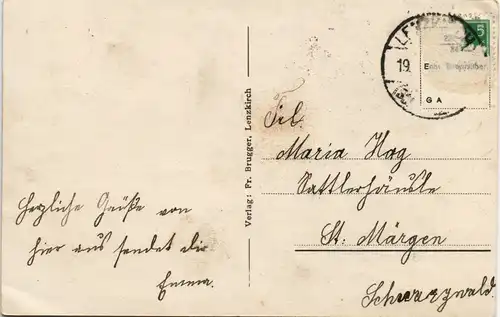 Herzliche Grüße von
hier aus sendet dir
Emma.
Verlag: Fr. Brugger, Lenzkirch
LENZK
19
5
G A
Frl.
Maria Hog
Sattlerhäusle
St. Märgen
Schwarzwald.